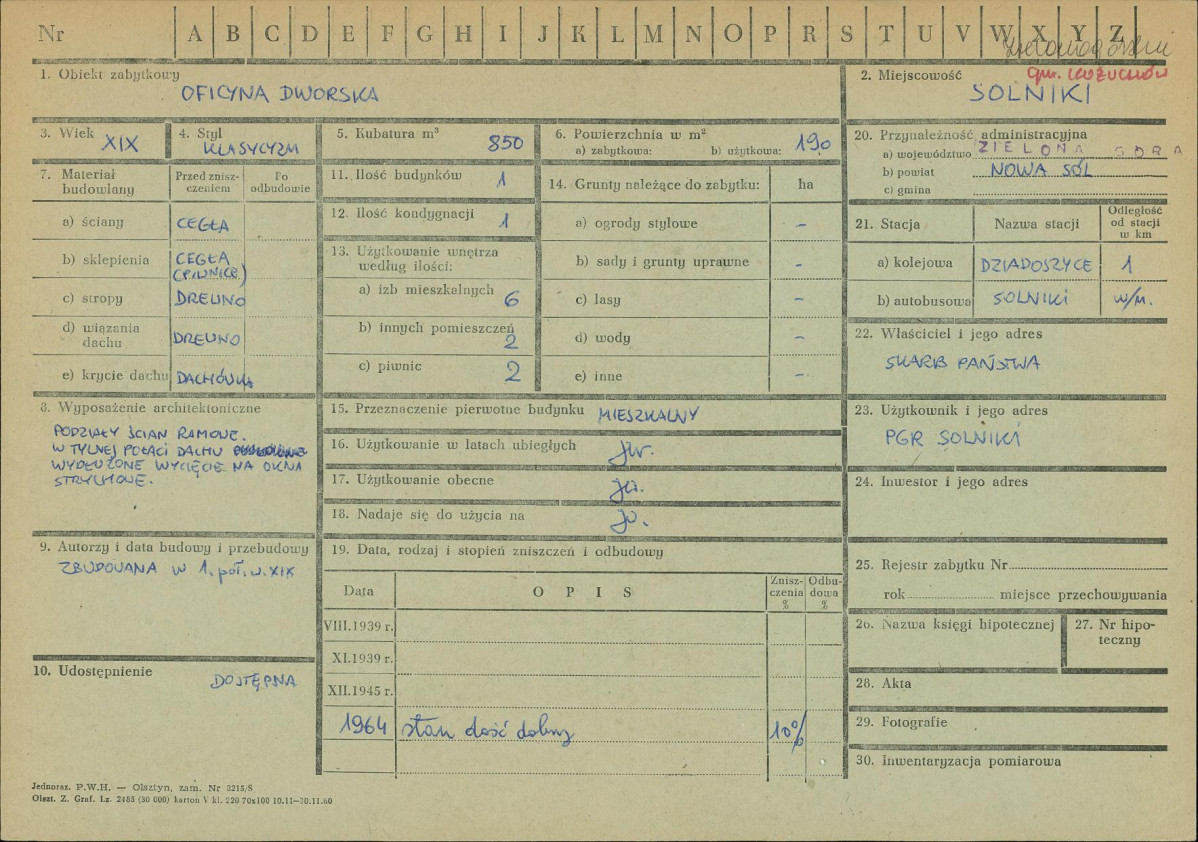 Nr A B C D E F G H I J K L M N O P R S T U V W X Y Z
gm. KOŻUCHÓW
1. Obiekt zabytkowy
OFICYNA DWORSKA
2. Miejscowość
SOLNIKI
3. Wiek
XIX
4. Styl
KLASYCYZM
5. Kubatura m³
850
6. Powierzchnia w m²
a) zabytkowa: b) użytkowa: 190
20. Przynależność administracyjna
a) województwo ZIELONA GÓRA
b) powiat NOWA SÓL
c) gmina
7. Materiał budowlany
Przed zniszczeniem
Po odbudowie
a) ściany CEGŁA
b) sklepienia CEGŁA
(PIWNICE)
c) stropy DREWNO
d) wiązania dachu DREWNO
e) krycie dachu DACHÓWKA
11. Ilość budynków 1
12. Ilość kondygnacji 1
13. Użytkowanie wnętrza
według ilości:
a) izb mieszkalnych 6
b) innych pomieszczeń 2
c) piwnic 2
14. Grunty należące do zabytku: ha
a) ogrody stylowe –
b) sady i grunty uprawne –
c) lasy –
d) wody –
e) inne –
21. Stacja Nazwa stacji Odległość od stacji w km
a) kolejowa DZIADOSZYCE 1
b) autobusowa SOLNIKI w/m.
22. Właściciel i jego adres
SKARB PAŃSTWA
8. Wyposażenie architektoniczne
PODZIAŁY ŚCIAN RAMOWE.
W TYLNEJ POŁACI DACHU
WYDŁUŻONE WYCIĘCIE NA OKNA
STRYCHOWE.
15. Przeznaczenie pierwotne budynku MIESZKALNY
16. Użytkowanie w latach ubiegłych jw.
17. Użytkowanie obecne jw.
18. Nadaje się do użycia na jw.
23. Użytkownik i jego adres
PGR SOLNIKI
24. Inwestor i jego adres
9. Autorzy i data budowy i przebudowy
ZBUDOWANA W 1. poł. w. XIX
10. Udostępnienie
DOSTĘPNA
19. Data, rodzaj i stopień zniszczeń i odbudowy
Data OPIS Zniszczenia % Odbudowa %
VIII.1939 r.
XI.1939 r.
XII.1945 r.
1964 stan dość dobry 10%
25. Rejestr zabytku Nr
rok miejsce przechowywania
26. Nazwa księgi hipotecznej
27. Nr hipoteczny
28. Akta
29. Fotografie
30. Inwentaryzacja pomiarowa
Jednoraz. P.W.H. — Olsztyn, zam. Nr 3215/S
Olszt. Z. Graf. Lz. 2485 (30 000) karton V kl. 220 70x100 10.11—30.11.60